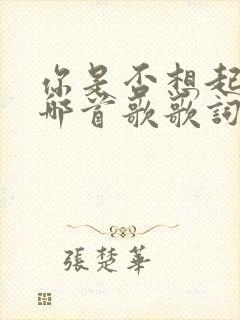 你是否想起
那首歌歌詞
張楚華